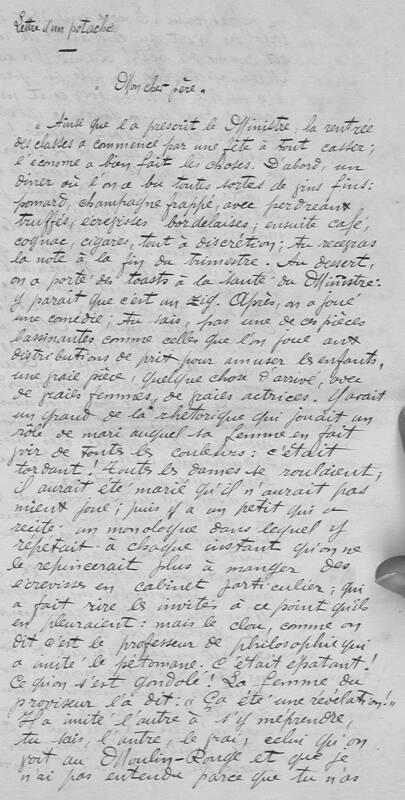 Lettre d'un potache
" Mon cher père "
" Ainsi que l'a prescrit le Ministre, la rentrée
des classes a commencé par une fête à tout casser ;
l'économe a bien fait les choses. D'abord, un
dîner où l'on a bu toutes sortes de fins fins :
pomard, champagne frappé, avec perdreaux
truffés, écrevisses bordelaises ; ensuite café,
cognac, cigares, tout à discrétion ; tu recevras
la note à la fin du trimestre. Au dessert,
on a porté des toasts à la santé du Ministre :
y paraît que c'est un zig. Après, on a joué
une comédie ; tu sais, pas une de ces pièces
bassinantes comme celles que l'on joue aux
distributions de prix pour amuser les enfants,
une vraie pièce, quelque chose d'arrivé, avec
de vraies femmes, de vraies actrices. Y avait
un grand de la rhétorique qui jouait un
rôle de mari auquel sa femme en fait
voir de toutes les couleurs : c'était
tordant ! toutes les dames se roulaient ;
il aurait été marié qu'il n'aurait pas
mieux joué ; puis y a un petit qui a
récité un monologue dans lequel y
répétait à chaque instant qu'on ne
le repincerait plus à manger des
écrevisses en cabinet particulier ; qui
a fait rire les invités à ce point qu'ils
en pleuraient : mais le clou, comme on
dit c'est le professeur de philosophie qui
a imité le pétomane. C'était épatant !
Ce qu'on s'est gondolé ! La femme du
proviseur l'a dit : " Ça été une révélation ! "
Il a imité l'autre à s'y méprendre,
tu sais, l'autre, le vrai, celui qu'on
voit au Moulin-Rouge et que je
n'ai pas entendu parce que tu n'as